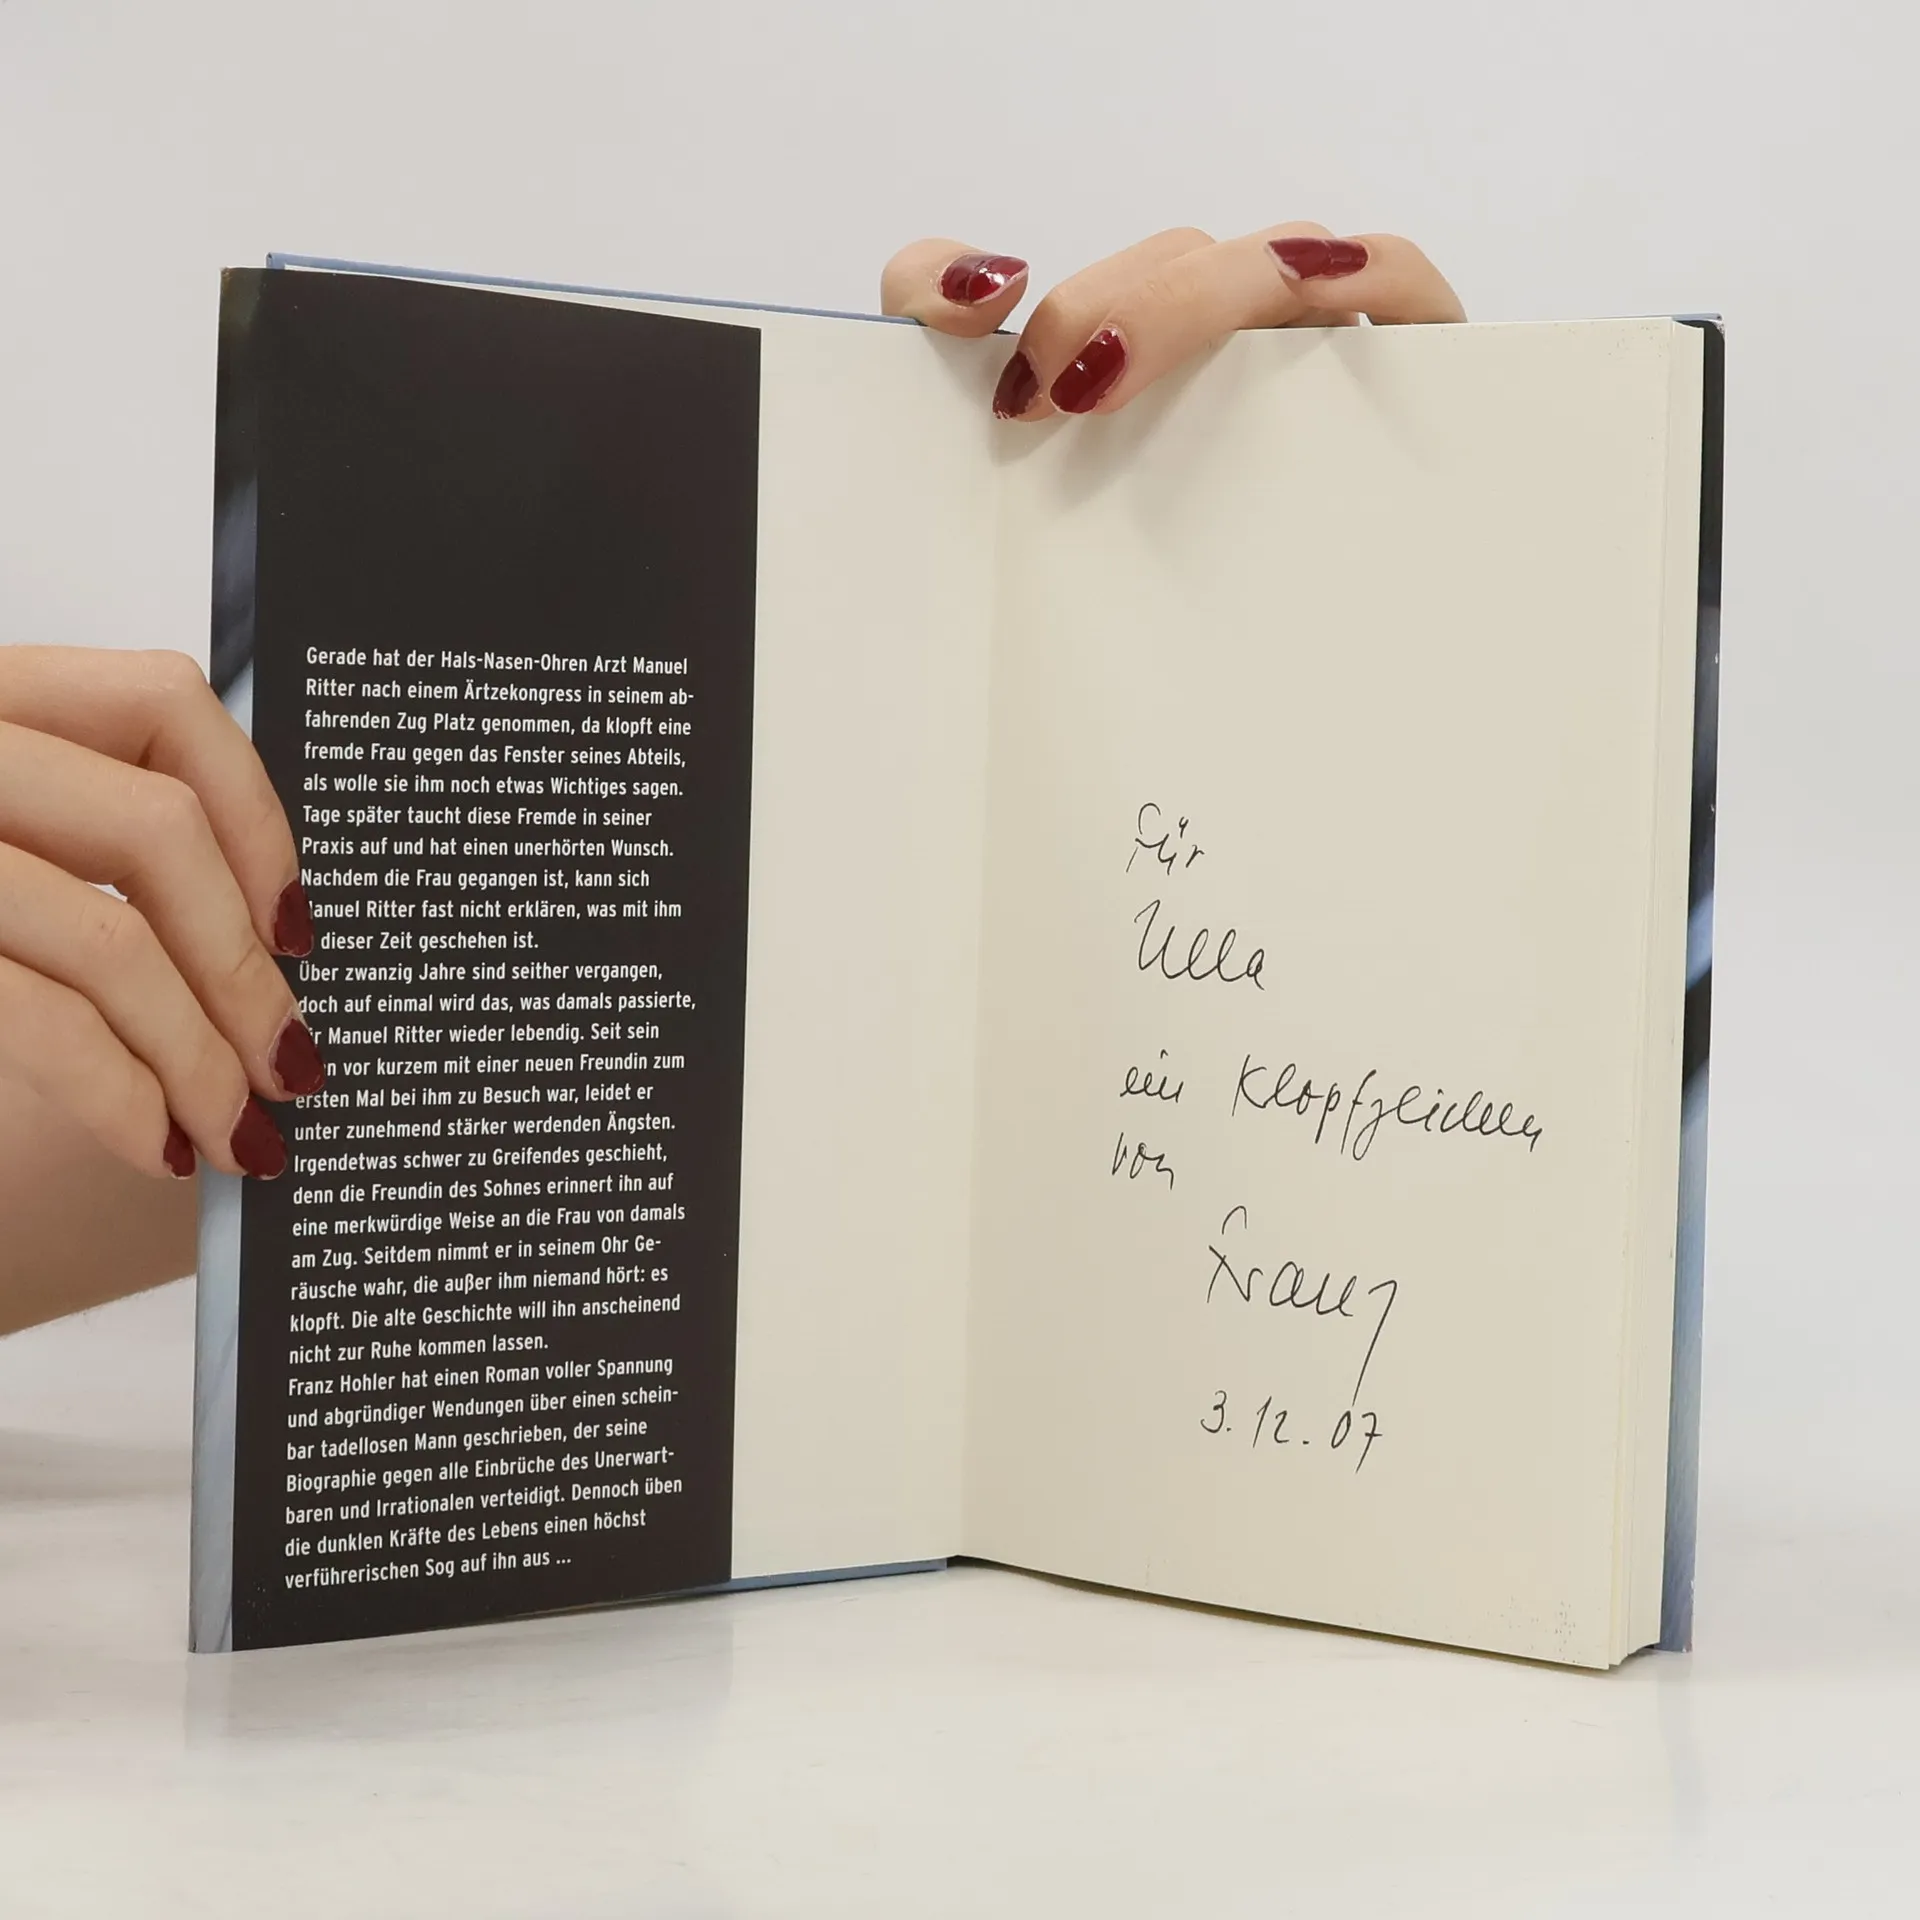 Gerade hat der Hals-Nasen-Ohren Arzt Manuel
Ritter nach einem Ärtzekongress in seinem ab-
fahrenden Zug Platz genommen, da klopft eine
fremde Frau gegen das Fenster seines Abteils,
als wolle sie ihm noch etwas Wichtiges sagen.
Tage später taucht diese Fremde in seiner
Praxis auf und hat einen unerhörten Wunsch.
Nachdem die Frau gegangen ist, kann sich
anuel Ritter fast nicht erklären, was mit ihm
dieser Zeit geschehen ist.
Über zwanzig Jahre sind seither vergangen,
doch auf einmal wird das, was damals passierte,
r Manuel Ritter wieder lebendig. Seit sein
n vor kurzem mit einer neuen Freundin zum
ersten Mal bei ihm zu Besuch war, leidet er
unter zunehmend stärker werdenden Ängsten.
Irgendetwas schwer zu Greifendes geschieht,
denn die Freundin des Sohnes erinnert ihn auf
eine merkwürdige Weise an die Frau von damals
am Zug. Seitdem nimmt er in seinem Ohr Ge-
räusche wahr, die außer ihm niemand hört: es
klopft. Die alte Geschichte will ihn anscheinend
nicht zur Ruhe kommen lassen.
Franz Hohler hat einen Roman voller Spannung
und abgründiger Wendungen über einen schein-
bar tadellosen Mann geschrieben, der seine
Biographie gegen alle Einbrüche des Unerwart-
baren und Irrationalen verteidigt. Dennoch üben
die dunklen Kräfte des Lebens einen höchst
verführerischen Sog auf ihn aus ...
Für
Ulla
ein Klopfzeichen
von
Franz
3. 12. 07